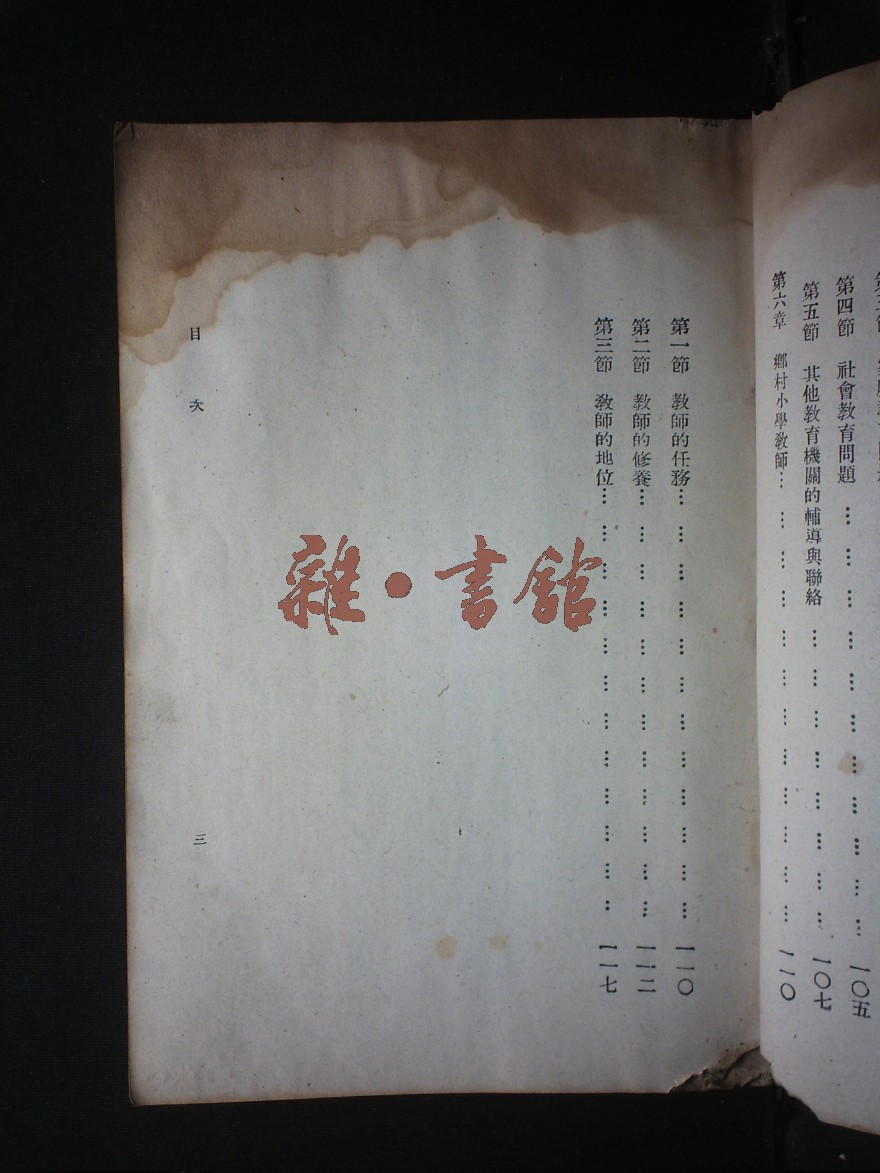 第四節 社會教育問題 … … … … … … … … … … … … 一〇五
第五節 其他教育機關的輔導與聯絡 … … … … … … … … 一〇七
第六章 鄉村小學教師 … … … … … … … … … … … … 一一〇
第一節 教師的任務 … … … … … … … … … … … … 一一〇
第二節 教師的修養 … … … … … … … … … … … … 一一二
第三節 教師的地位 … … … … … … … … … … … … 一一七
目次
三
雜·書館